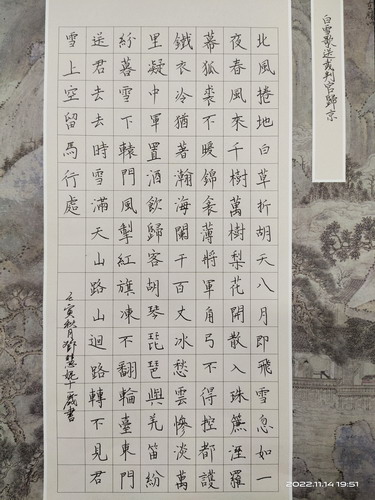 白雪歌送武判官歸京
北風捲地白草折胡天八月即飛雪忽如一
夜春風來千樹萬樹梨花開散入珠簾溼羅
幕狐裘不暖錦衾薄將軍角弓不得控都護
鐵衣冷猶著瀚海闌干百丈冰愁雲慘淡萬
里凝中軍置酒飲歸客胡琴琵琶與羌笛紛
紛暮雪下轅門風掣紅旗凍不翻輪臺東門
送君去去時雪滿天山路山迴路轉不見君
雪上空留馬行處
壬寅秋月鄧慧妮十歲書
2022.11.14 19:51